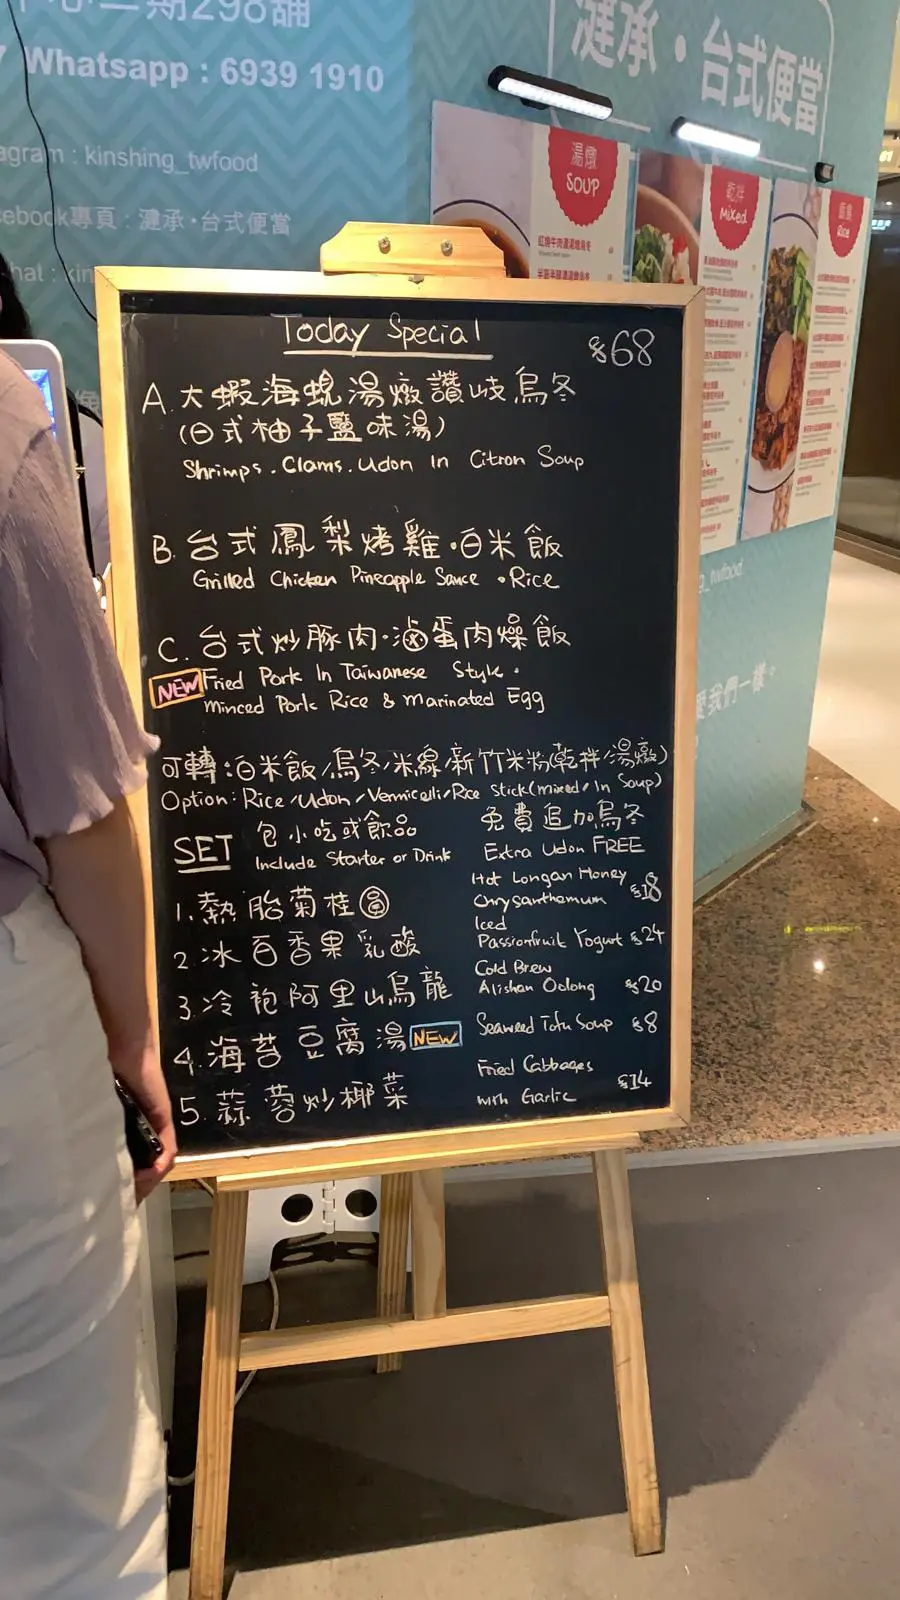 中心二期298舖
Whatsapp : 6939 1910
agram : kinshing_twfood
cebook專頁 : 漣承・台式便當
漣承・台式便當
湯燉
SOUP
乾拌
Mixed
飯食
Rice
紅燒牛肉濃湯燉烏冬
Today Special
$68
A. 大蝦海蜆湯燉讚岐烏冬
(日式柚子鹽味湯)
Shrimps . Clams . Udon In Citron Soup
B. 台式鳳梨烤雞・白米飯
Grilled Chicken Pineapple Sauce • Rice
C. 台式炒豚肉・滷蛋肉燥飯
NEW Fried Pork In Taiwanese Style .
Minced Pork Rice & Marinated Egg
可轉:白米飯/烏冬/米線/新竹米粉(乾拌/湯燉)
Option: Rice/Udon/Vermicelli/Rice stick(mixed/In Soup)
SET 包小吃或飲品
Include Starter or Drink
免費追加烏冬
Extra Udon FREE
1. 熱胎菊桂圓
Hot Longan Honey
Chrysanthemum $18
2. 冰百香果乳酸
Iced
Passionfruit Yogurt $24
3. 冷袍阿里山烏龍
Cold Brew
Alishan Oolong $20
4. 海苔豆腐湯 NEW
Seaweed Tofu Soup $8
5. 蒜蓉炒椰菜
Fried Cabbages
with Garlic $14
g_twfood
愛我們一樣。